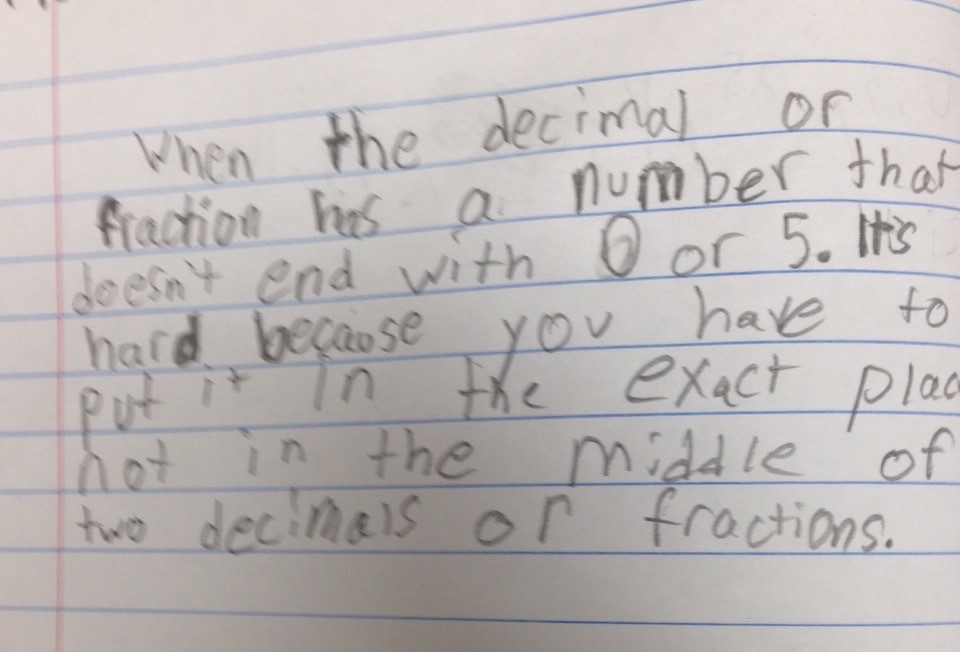 When the decimal or
fraction has a number that
doesn't end with 0 or 5. It's
hard because you have to
put it in the exact plac
not in the middle of
two decimals or fractions.